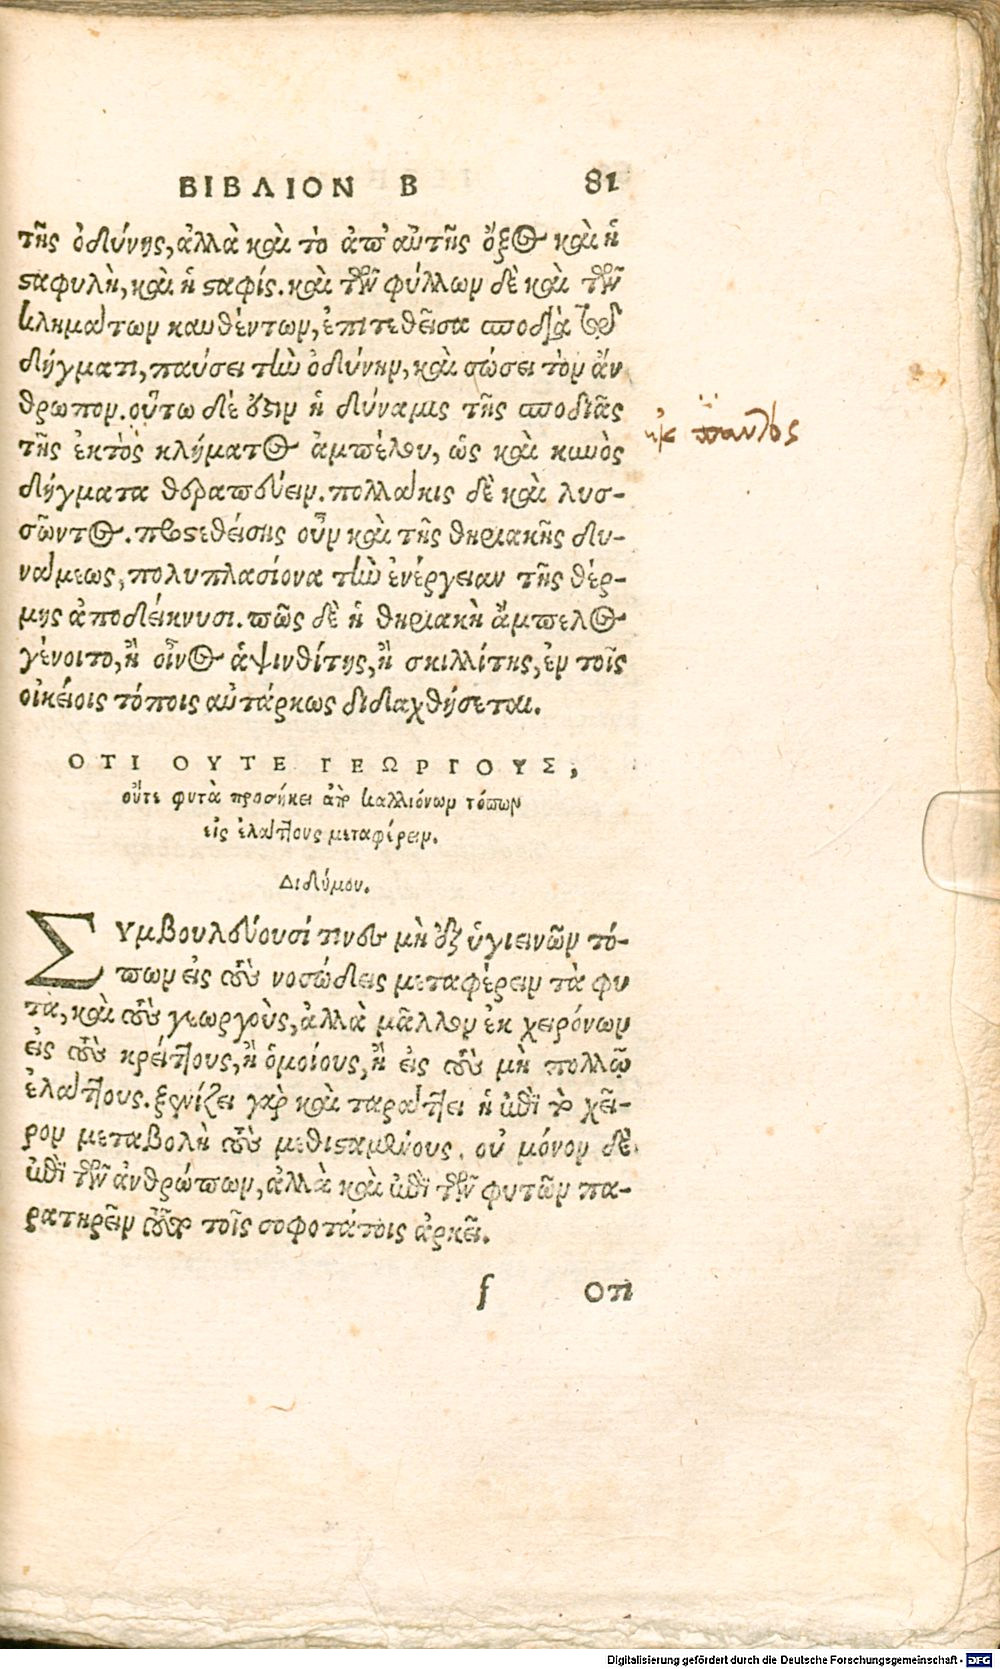 ΒΙΒΛΙΟΝ Β 81
τῆς ὀδύνης, ἀλλὰ καὶ τὸ ἀπ' αὐτῆς ὄξος καὶ ἡ
ϛαφυλὴ, καὶ ἡ ϛαφίς. καὶ τῶν φύλλων δὲ καὶ τῶν
κλημάτων καυθέντων, ἐπιτεθεῖσα σποδιὰ τῷ
δήγματι, παύσει τὴν ὀδύνην, καὶ σώσει τὸν ἄν
θρωπον. οὕτω δέ ἐϛιν ἡ δύναμις τῆς σποδιᾶς
τῆς ἐκτὸς κλήματος ἀμπέλου, ὡς καὶ κυνὸς
δήγματα θεραπεύειν. πολλάκις δὲ καὶ λυσ-
σῶντος. προϛεθείσης οὖν καὶ τῆς θηριακῆς δυ-
νάμεως, πολυπλασίονα τὴν ἐνέργειαν τῆς θέρ-
μης ἀποδείκνυσι. πῶς δὲ ἡ θηριακὴ ἄμπελος
γένοιτο, ἢ οἶνος ἀψινθίτης, ἢ σκιλλίτης, ἐν τοῖς
οἰκείοις τόποις αὐτάρκως διδαχθήσεται.
ΟΤΙ ΟΥΤΕ ΓΕΩΡΓΟΥΣ,
οὔτε φυτὰ προσήκει ἀπὸ καλλιόνων τόπων
εἰς ἐλάττους μεταφέρειν.
Διδύμου.
ΣΥμβουλεύουσί τινες μὴ ἐξ ὑγιεινῶν τό-
πων εἰς τοὺς νοσώδεις μεταφέρειν τὰ φυ
τὰ, καὶ τοὺς γεωργοὺς, ἀλλὰ μᾶλλον ἐκ χειρόνων
εἰς τοὺς κρείττους, ἢ ὁμοίους, ἢ εἰς τοὺς μὴ πολλῷ
ἐλάττους. ξενίζει γὰρ καὶ ταράττει ἡ ἐπὶ τὸ χεῖ-
ρον μεταβολὴ τοὺς μεθιϛαμένους. οὐ μόνον δὲ
ἐπὶ τῶν ἀνθρώπων, ἀλλὰ καὶ ἐπὶ τῶν φυτῶν πα-
ρατηρεῖν τοῦτο τοῖς σοφοτάτοις ἀρκεῖ.
f οτι
Digitalisierung gefördert durch die Deutsche Forschungsgemeinschaft - DFG